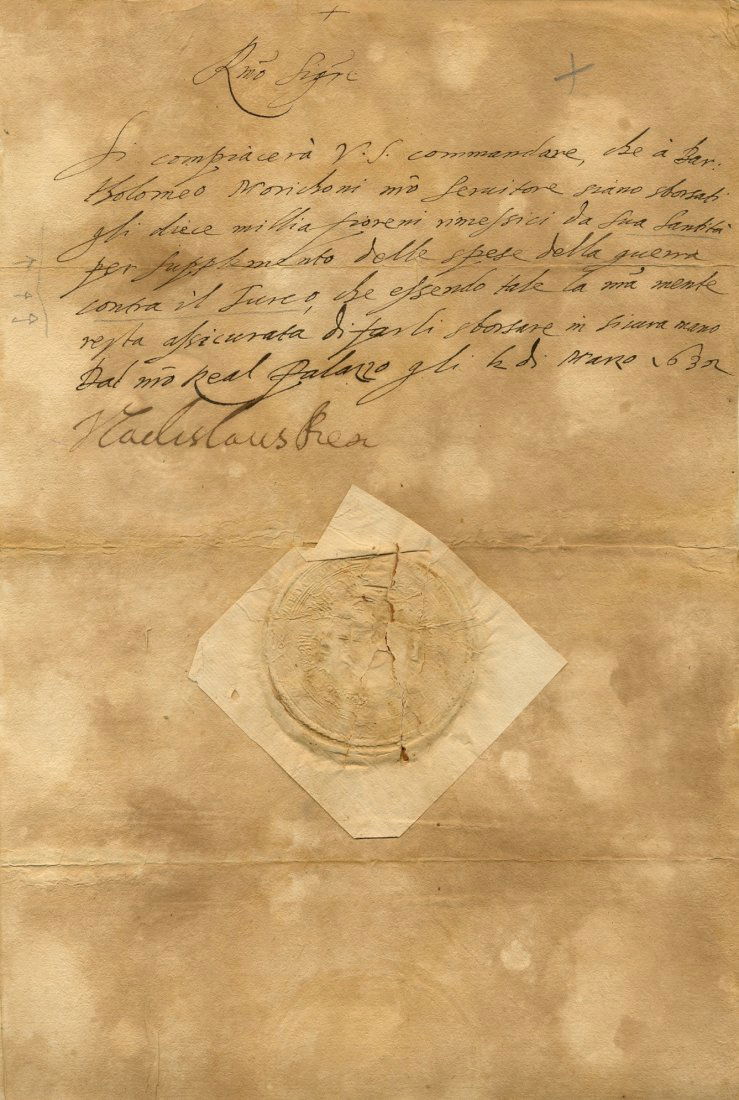 Rmo Sigre
Si compiacerà V. S. commandare, che à Bar:
tholomeo Morichoni nro Servitore siano sborsati
gli diece millia fioreni rimessici da Sua Santità
per supplemento delle spese della guerra
contra il Turco, che essendo tale la nra mente
resta assicurata di farli sborsare in sicura mano
Dal nro Real Palazzo gli di Marzo
Vladislaus Rex